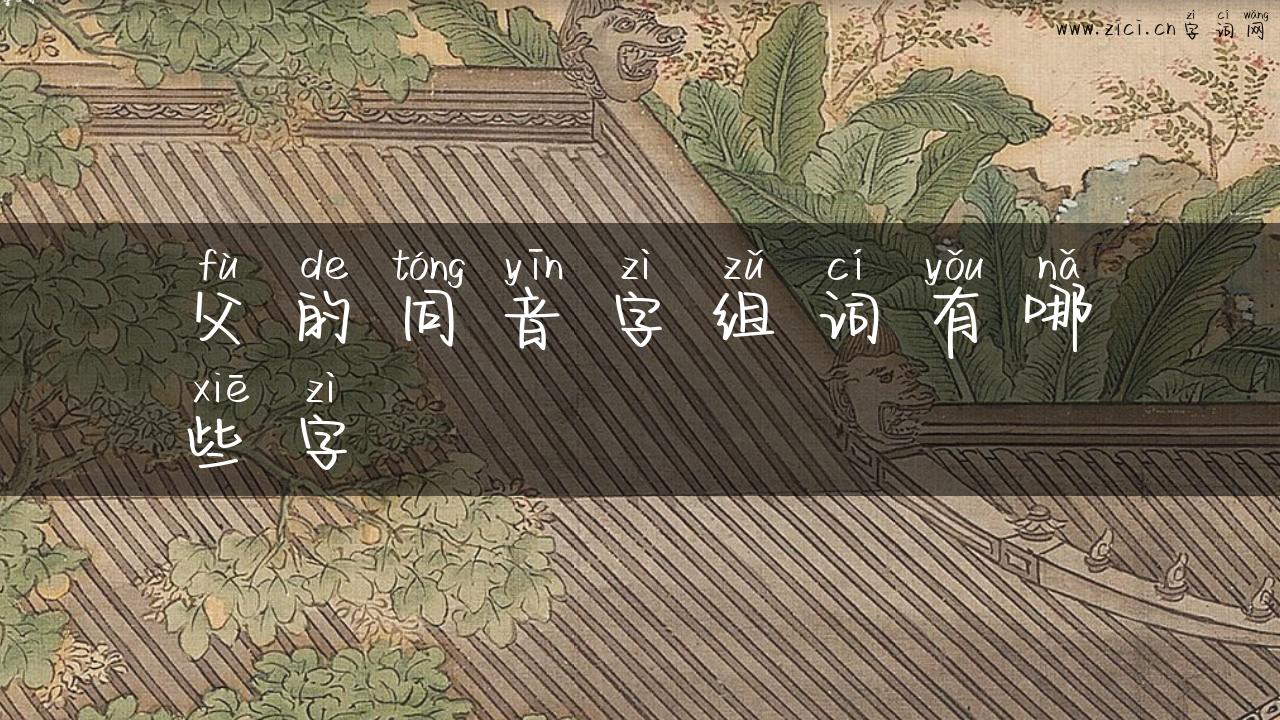 zì cí wǎng
www.zici.cn 字词网
fù de tóng yīn zì zǔ cí yǒu nǎ
父的同音字组词有哪
xiē zì
些字